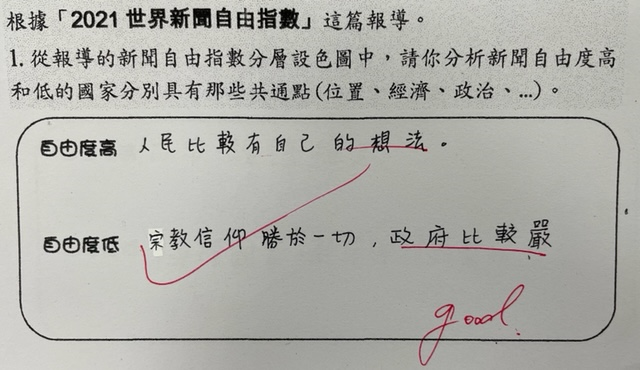 根據「2021世界新聞自由指數」這篇報導。
1.從報導的新聞自由指數分層設色圖中，請你分析新聞自由度高
和低的國家分別具有那些共通點(位置、經濟、政治、…)。
自由度高 人民比較有自己的想法。
自由度低 宗教信仰勝於一切，政府比較嚴
good.